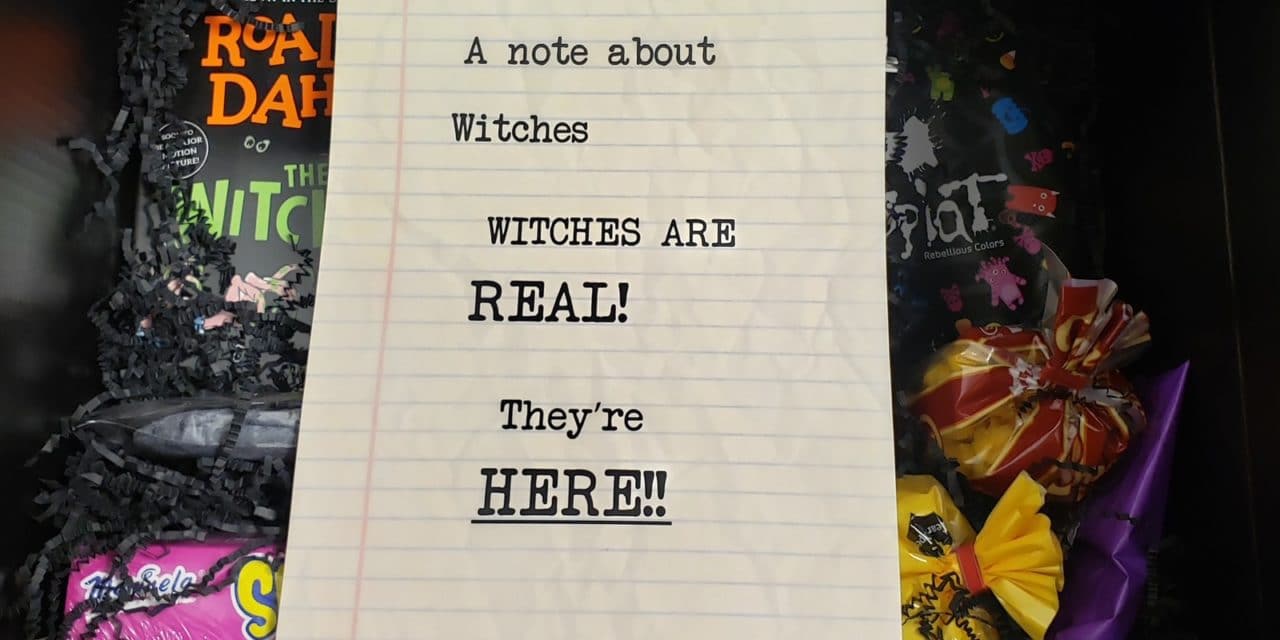 ROAL
DAH
SOON TO
BE A MAJOR
MOTION
PICTURE!
THE
WITCH
A note about
Witches
WITCHES ARE
REAL!
They're
HERE!!
Splat
Rebellious Colors